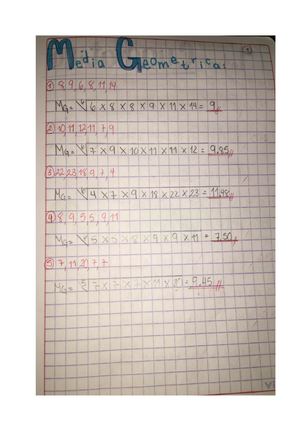 Media Geometrica:
① 8, 9, 6, 8, 11, 14
MG= ⁶√6 x 8 x 8 x 9 x 11 x 14 = 9
② 10, 11, 12, 11, 7, 9
MG= ⁶√7 x 9 x 10 x 11 x 11 x 12 = 9,85
③ 22, 23, 18, 9, 7, 4
MG= ⁶√4 x 7 x 9 x 18 x 22 x 23 = 11,48
④ 8, 9, 5, 5, 9, 11
MG= ⁶√5 x 5 x 8 x 9 x 9 x 11 = 7,50
⑤ 7, 11, 20, 7, 7
MG= ⁵√7 x 7 x 7 x 11 x 20 = 9,45